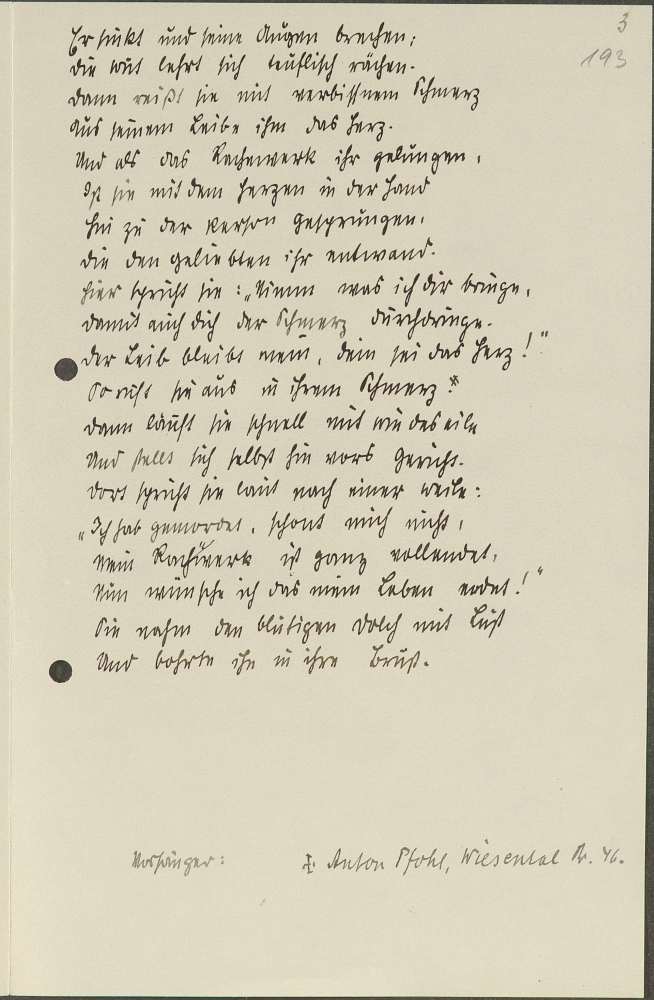 3
193
Er sinkt und seine Augen brechen;
die Wut lehrt sich teuflisch rächen.
Dann reißt sie mit verbissnem Schmerz
Aus seinem Leibe ihm das Herz.
Und als das Rachewerk ihr gelungen,
Ist sie mit dem Herzen in der Hand
Hin zu der Person gesprungen,
die den Geliebten ihr entwand.
Hier spricht sie: „Nimm was ich dir bringe,
damit auch dich der Schmerz durchdringe.
Der Leib bleibt mein, dein sei das Herz!"
So ruft sie aus in ihrem Schmerz.
Dann läuft sie schnell mit Windeseile
Und stellt sich selbst hin vors Gericht.
Dort spricht sie laut nach einer Weile:
„Ich hab gemordet, schont mich nicht,
Mein Rachwerk ist ganz vollendet,
Nun wünsche ich das mein Leben endet!"
Sie nahm den blutigen Dolch mit Lust
Und bohrte ihn in ihre Brust.
Vorsänger: Anton Pfohl, Wiesental Nr. 46.